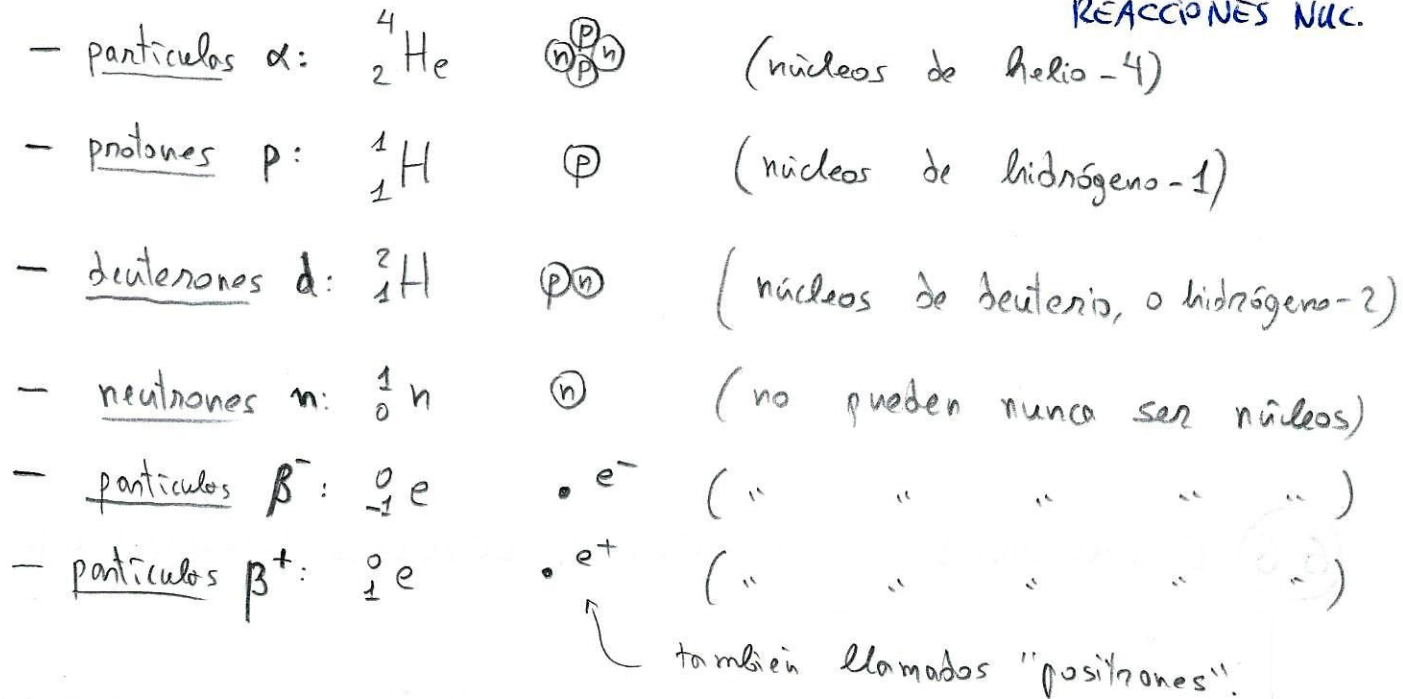 REACCIONES NUC.
- partículas α: ⁴₂He (n)(p)(p)(n) (núcleos de helio-4)
- protones p: ¹₁H (p) (núcleos de hidrógeno-1)
- deuterones d: ²₁H (p)(n) (núcleos de deuterio, o hidrógeno-2)
- neutrones n: ¹₀n (n) (no pueden nunca ser núcleos)
- partículas β⁻: ⁰₋₁e • e⁻ (" " " " ")
- partículas β⁺: ⁰₁e • e⁺ (" " " " ")
también llamados "positrones".